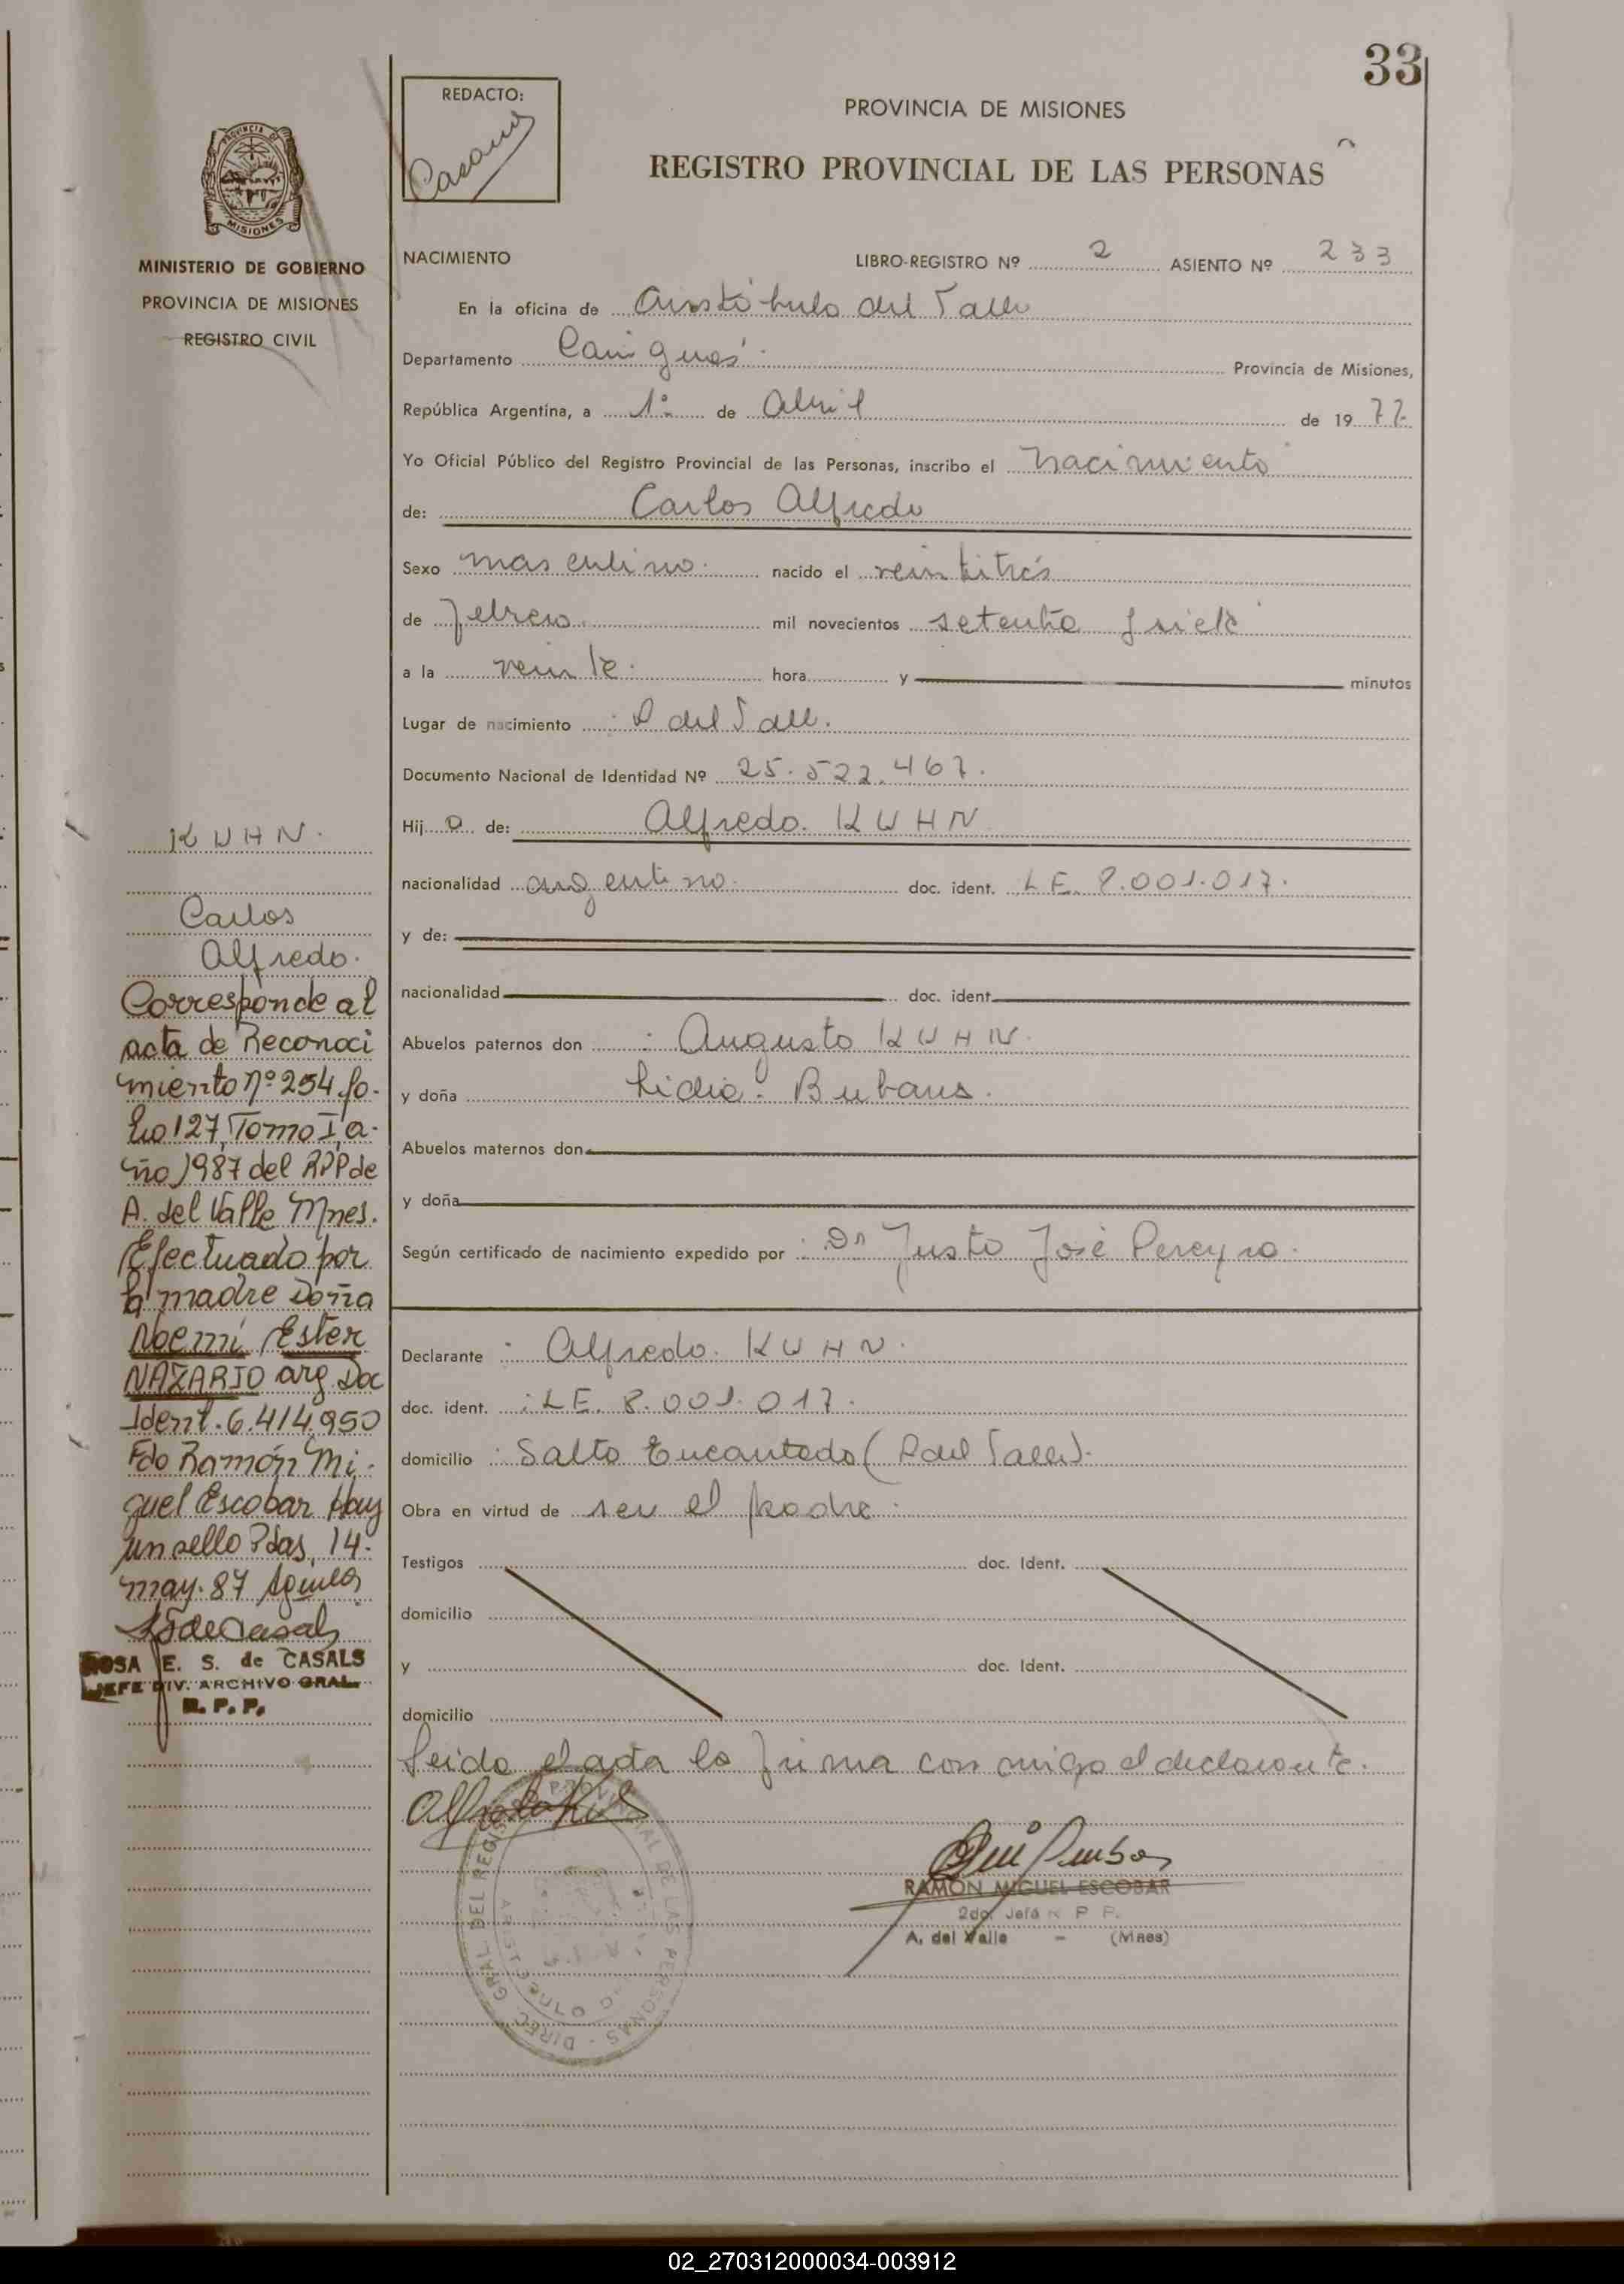 33
REDACTO:
PROVINCIA DE MISIONES
REGISTRO PROVINCIAL DE LAS PERSONAS
MISIONES
MINISTERIO DE GOBIERNO
PROVINCIA DE MISIONES
REGISTRO CIVIL
NACIMIENTO LIBRO-REGISTRO Nº 2 ASIENTO Nº 233
En la oficina de Aristóbulo del Valle
Departamento Cainguás Provincia de Misiones,
República Argentina, a 1º de Abril de 1977.
Yo Oficial Público del Registro Provincial de las Personas, inscribo el nacimiento
de: Carlos Alfredo
Sexo masculino. nacido el veintitrés
de febrero mil novecientos setenta y siete
a la veinte. hora y minutos
Lugar de nacimiento : A del Valle.
Documento Nacional de Identidad Nº 25.522.467.
Hijo de: Alfredo KUHN
nacionalidad argentino. doc. ident. LE. 8.001.017.
y de:
nacionalidad doc. ident.
Abuelos paternos don : Augusto KUHN.
y doña Lidia Bubans.
Abuelos maternos don
y doña
Según certificado de nacimiento expedido por : Dr Justo José Pereyra.
Declarante : Alfredo KUHN.
doc. ident. : LE. 8.001.017.
domicilio : Salto Encantado (A del Valle).
Obra en virtud de ser el padre.
Testigos doc. Ident.
domicilio
y doc. Ident.
domicilio
Leída el acta la firma conmigo el declarante.
RAMON MIGUEL ESCOBAR
2do. Jefe R P P.
A. del Valle - (Mnes)
DIREC. GRAL. DEL REGISTRO PROVINCIAL DE LAS PERSONAS
KUHN.
Carlos
Alfredo.
Corresponde al
acta de Reconoci
miento nº 254 fo-
lio 127, Tomo I, a-
ño 1987 del RPP de
A. del Valle Mnes.
Efectuado por
la madre Doña
Noemí Ester
NAZARIO arg. Doc
Ident. 6.414.950
Fdo Ramón Mi-
guel Escobar Hay
un sello Pdas, 14-
may. 87
ROSA E. S. de CASALS
JEFE DIV. ARCHIVO GRAL.
R. P. P.
02_270312000034-003912